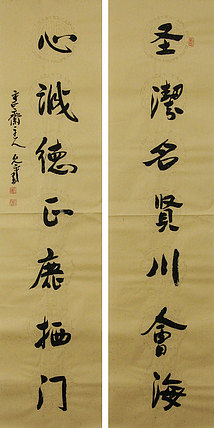 圣潔名賢川會海
心誠德正鹿栖门